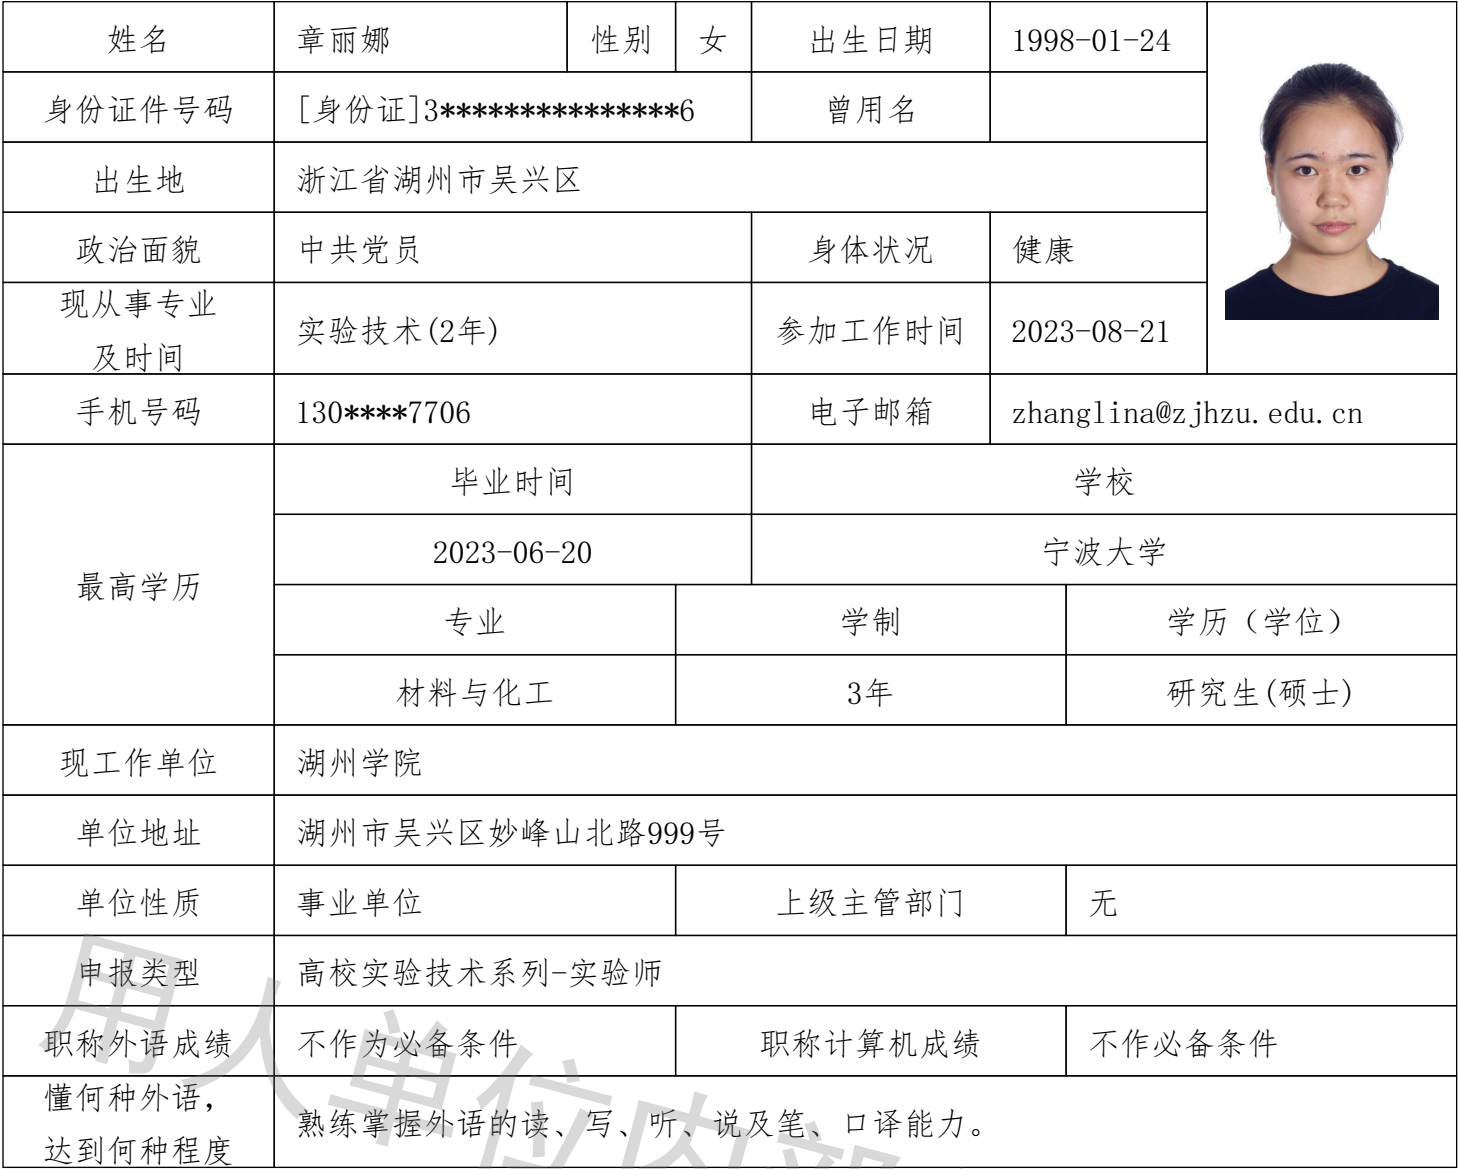 姓名 章丽娜 性别 女 出生日期 1998-01-24
身份证件号码 [身份证]3***************6 曾用名
出生地 浙江省湖州市吴兴区
政治面貌 中共党员 身体状况 健康
现从事专业
及时间 实验技术(2年) 参加工作时间 2023-08-21
手机号码 130****7706 电子邮箱 zhanglina@zjhzu.edu.cn
最高学历
毕业时间 学校
2023-06-20 宁波大学
专业 学制 学历（学位）
材料与化工 3年 研究生(硕士)
现工作单位 湖州学院
单位地址 湖州市吴兴区妙峰山北路999号
单位性质 事业单位 上级主管部门 无
申报类型 高校实验技术系列-实验师
职称外语成绩 不作为必备条件 职称计算机成绩 不作必备条件
懂何种外语，
达到何种程度 熟练掌握外语的读、写、听、说及笔、口译能力。
用人单位内部